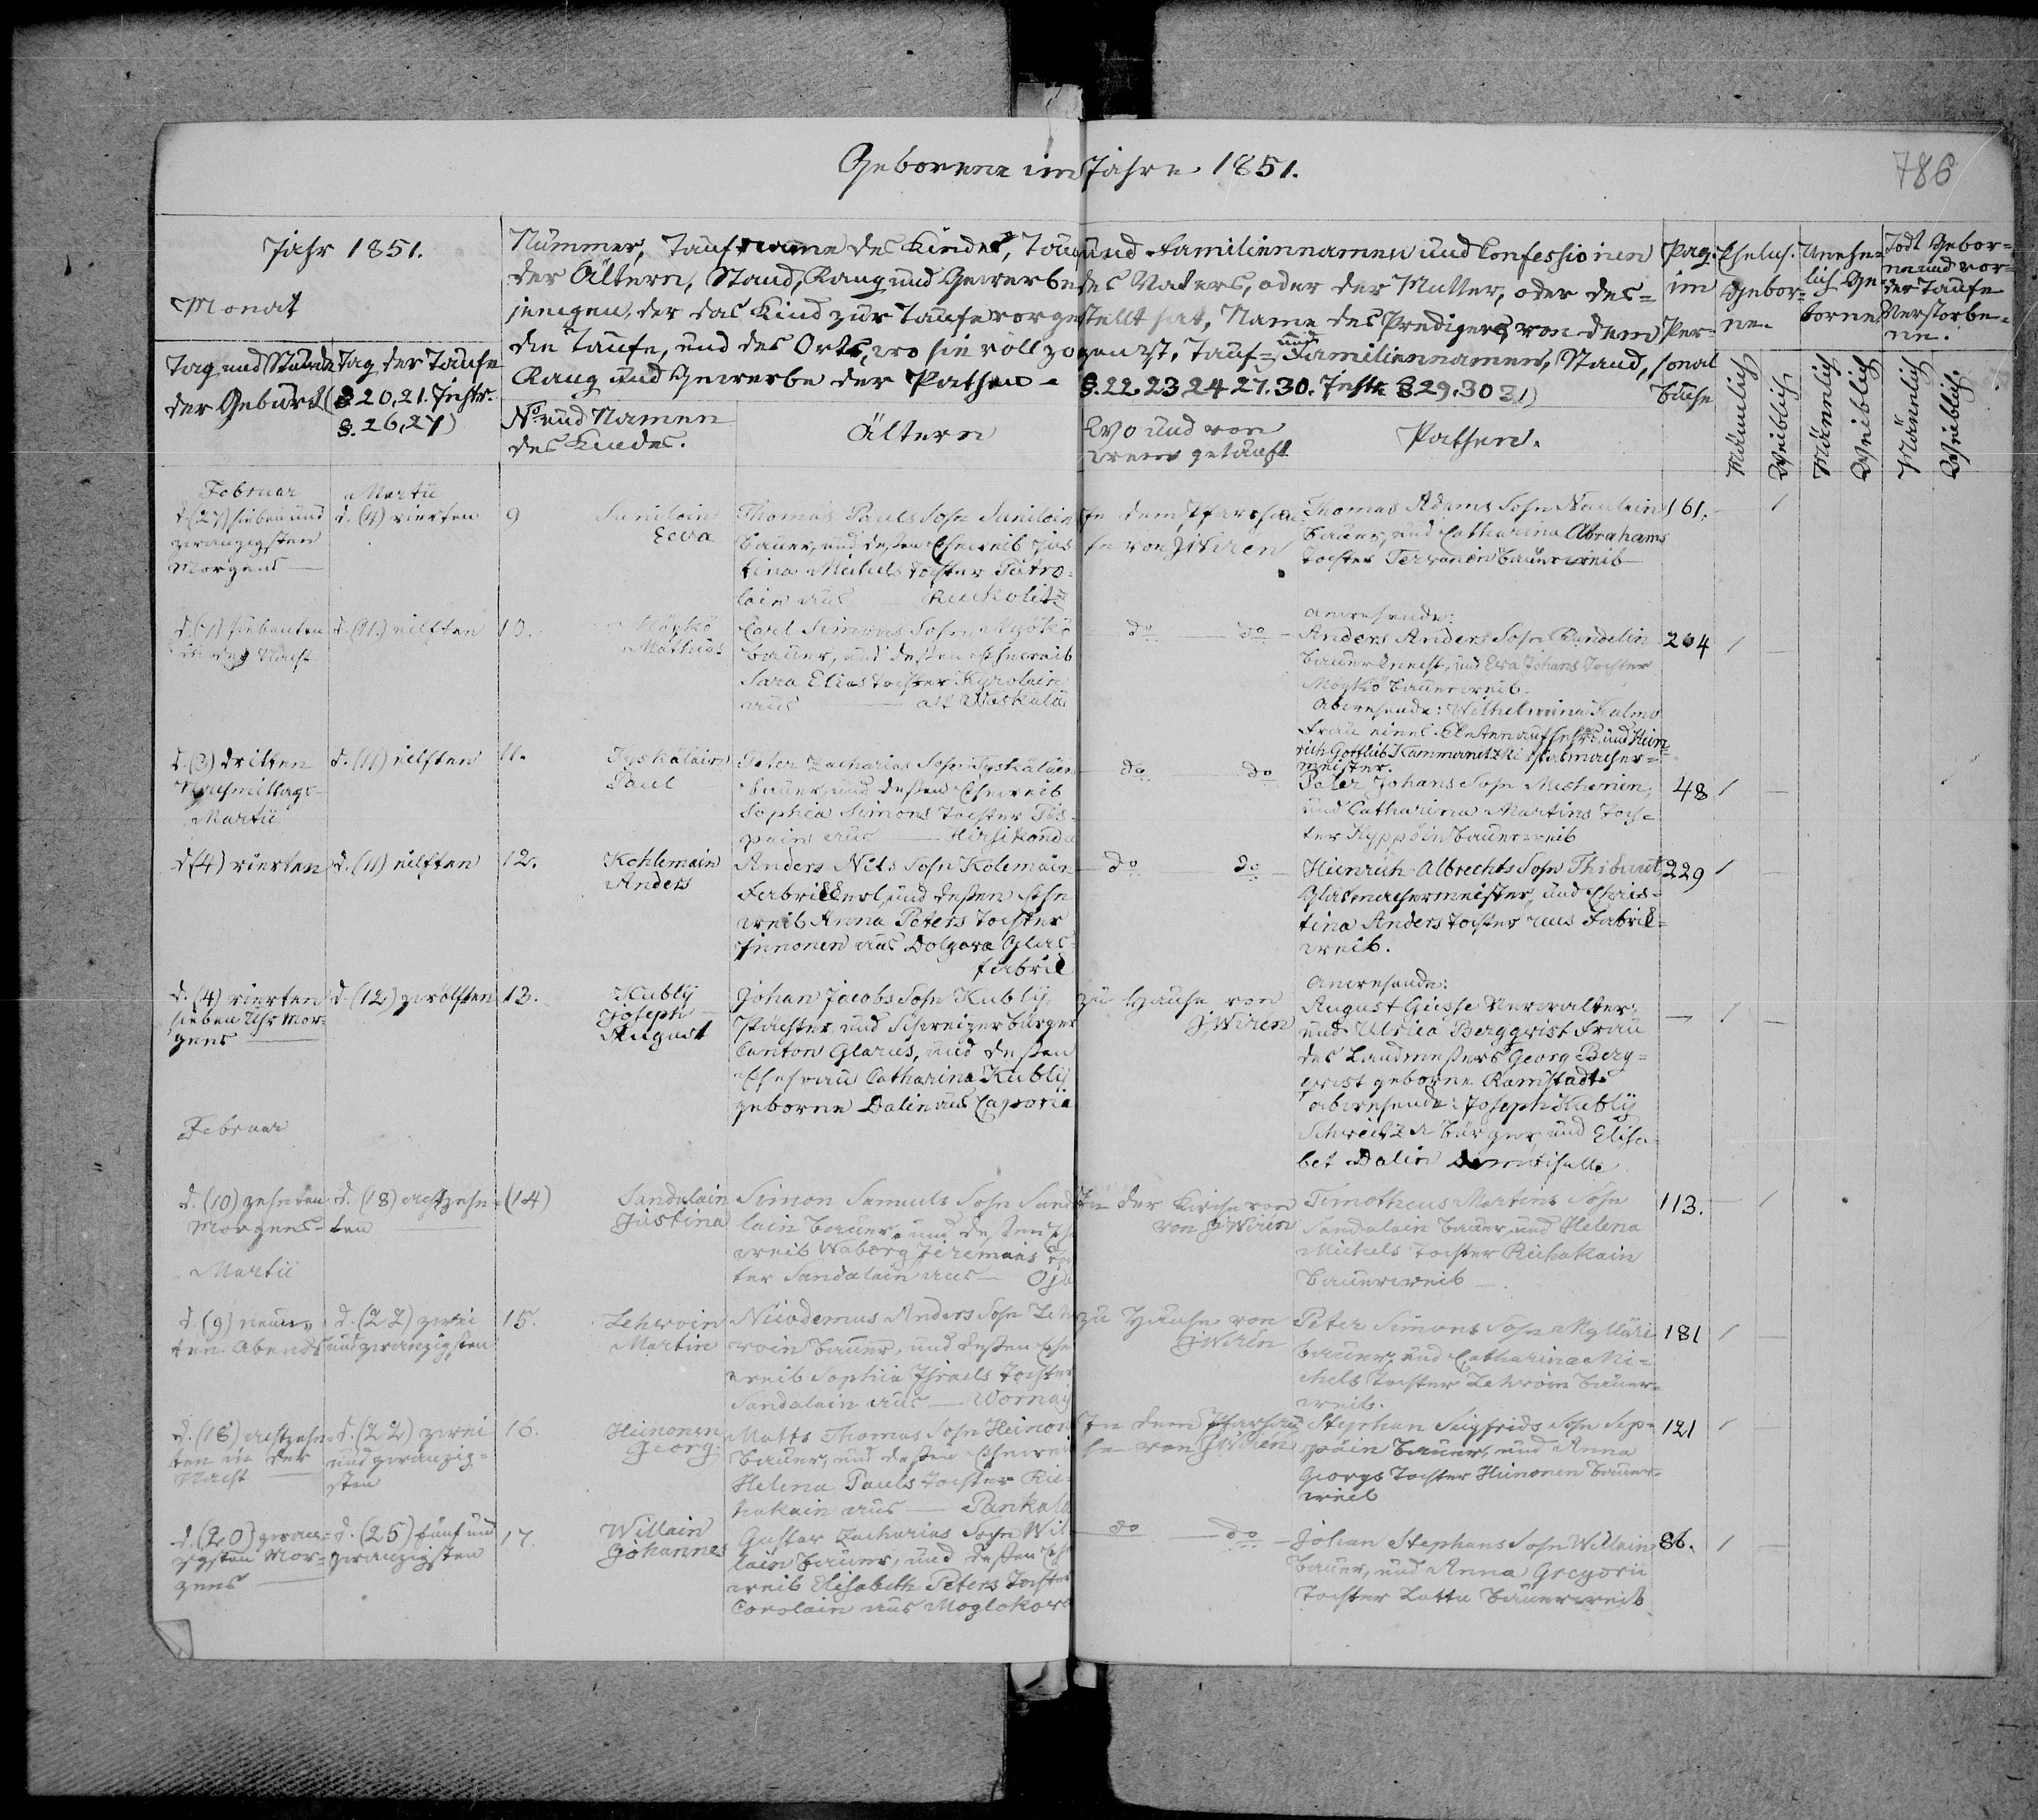 Geborene im Jahre 1851.
786
Jahr 1851.
Monat
Tag und Stunde der Geburt
Tag der Taufe (§ 20, 21. Instr. §. 26, 27)
Nummer, Taufname des Kindes, Tauf und Familiennamen und Confessionen
der Ältern, Stand, Rang und Gewerbe des Vaters, oder der Mutter, oder des=
jenigen, der das Kind zur Taufe vorgestellt hat, Name des Predigers, von dem
die Taufe, und des Orts, wo sie vollzogen ist, Tauf= und Familiennamen, Stand,
Rang und Gewerbe der Pathen - §. 22. 23. 24. 27. 30. Instr. § 29. 30 31)
No. und Namen
des Kindes.
Ältern
Wo und von
wem getauft
Pathen.
Pag.
im
Per=
sonal
buche
Ehelich
Gebor=
ne.
Unehe=
lich Ge=
borne
Todt Gebor=
ne und vor
der Taufe
Verstorbe=
ne.
Männlich
Weiblich
Männlich
Weiblich
Männlich
Weiblich.
Februar
d. (27) sieben und
zwanzigsten
Morgens
Martii
d. (4) vierten
9
Suniloin
Eeva
Thomas Pauls Sohn Suniloin
bauer, und deßen Eheweib Jus=
tina Michels Tochter
lain aus
In dem Pfarrhau=
se von J Wirén
Thomas Adams Sohn Naulain
bauer, und Catharina Abrahams
Tochter Terwonen bauerweib
161.
1
d. (7) siebenten
in der Nacht
d. (11.) eilften
10.
Möykö
Mathias
Carl Simons Sohn Möykö
bauer, und deßen Eheweib
Sara Elias Tochter Kyrolain
aus
do do
Anwesende:
Anders Anders Sohn Rundelin
bauerknecht, und Eva Johans Tochter
Möykö bauerweib.
Abwesende: Wilhelmina Kalmo
Frau eines Elestenaufsehrs, und Hein=
rich Gottlieb Kammanitzki Glasmacher=
meister.
204
1
d. (3) dritten
Nachmittags
Martii
d. (11) eilften
11.
Tyskälain
Paul
Peter Zacharias Sohn Tyskälain
bauer, und deßen Eheweib
Sophia Simons Tochter Pis=
pain aus Hirsikondu
do do
Peter Johans Sohn Mishenin,
und Catharina Martins Toch=
ter Hyppöin bauerweib
48
1
d (4) vierten
d. (11) eilften
12.
Kohlemain
Anders
Anders Nils Sohn Kolemain
Fabrikkerl, und deßen Ehe
weib Anna Peters Tochter
Finonen aus Dolgova Glas=
fabrik
do do
Heinrich Albrechts Sohn Thibaut
Glasmachermeister, und Chris=
tina Anders Tochter aus Fabrik=
weib.
229
1
d. (4) vierten
sieben Uhr Mor=
gens
d. (12) zwölften
13.
Kublÿ
Joseph
August
Johan Jacobs Sohn Kublÿ,
Pächter und Schweizerbürger
Canton Glarus, und deßen
Ehefrau Catharina Kublÿ
geborne Dalin aus Caporia
Zu Hause von
J Wirén
Anwesende:
August Giesse Verwalter,
und Ulrica Bergqvist Frau
des Landmeßers Georg Berg=
qvist geborne Ramstadt
abwesende: Joseph Kublÿ
Schweitzer bürger, und Elisa=
bet Dalin Demoiselle
1
Februar
d. (10) zehnten
Morgens
d. (18) achtzehn=
ten
(14)
Sandulain
Justina
Simon Samuels Sohn Sand
lain bauer, und deßen Ehe
weib Waborg Jeremiäs Toch
ter Sandalain aus
In der Kirche von
von J Wirén
Timotheus Martins Sohn
Sandalain bauer, und Helena
Michels Tochter Riihakain
bauerweib
113.
1
Martii
d. (9) neun=
ten Abends
d. (22) zwei
und zwanzigsten
15.
Lehwoin
Martin
Nicodemus Anders Sohn Leh
woin bauer, und deßen Ehe
weib Sophia Israels Tochter
Sandalain aus Wornaj
Zu Hause von
J Wirén
Peter Simons Sohn Mylläri
bauer, und Catharina Mi=
chels Tochter Lehwoin bauer=
weib.
181
1
d. (18) achtzehn=
ten in der
Nacht
d. (22) zwei
und zwanzig=
sten
16.
Heinonen
Georg.
Matts Thomas Sohn Heinon
bauer, und deßen Eheweib
Helena Pauls Tochter Rii=
hakain aus Pankala
In dem Pfarrhau
se von J Wirén
Stephan Sigfrids Sohn Sep=
päin bauer, und Anna
Georgs Tochter Heinonen bauer=
weib
121
1
d. (20) zwan=
zigsten Mor=
gens
d. (25) fünf und
zwanzigsten
17.
Willain
Johannes
Gustav Zacharias Sohn Wil
lain bauer, und deßen Ehe
weib Elisabeth Peters Tochter
Corolain aus Moglokow
do do
Johan Stephans Sohn Willain
bauer, und Anna Gregorii
Tochter Lattu bauerweib
86.
1